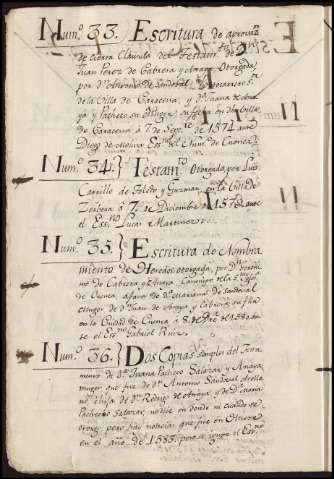 Num.º 33. Escritura de aprova.on
de cierta Clausula del Testam.to de
Juan Perez de Cabrera y otorgada
por D.n de Sandoval
de la Villa de Caracena, y D.ª Juana de Ama-
ya y Pacheco su Muger, su fha en dha Villa
de Caracena à 7 de Sep.re de 1574 ante
Diego de Molina Es.no del Num.º de Cuenca
Num.º 34. Testam.to Otorgado por Luis
Carrillo de Toledo y Guzman en la Ciu.d de
à 7 de Diciembre 1578 ante
el Ess.no Lucas Martinez
Num.º 35. Escritura de Nombra
miento de Heredero otorgada, por D.n
mo de Cabrera y Anaya Canonigo de la S.ta Iglesia
de Cuenca, a favor de D.ª Mariana de Sandoval
muger de D.n Juan de Anaya y Cabrera, su fha
en la Ciudad de Cuenca à 8 de de 1580 an
te el Es.no Gabriel Ruiz
Num.º 36. Dos Copias simples del Testa-
mento de D.ª Juana Pacheco Salazar y Amaya
muger que fue de D.n Antonio Sandoval Arella
no, è hija de D.n Rodrigo de Amaya, y de D.ª Juana
Pachecho Salazar, no dice en donde ni cuando se
otorgó, pero hay noticias que fue en
en el año de 1585. pero se ignora el Ess.no